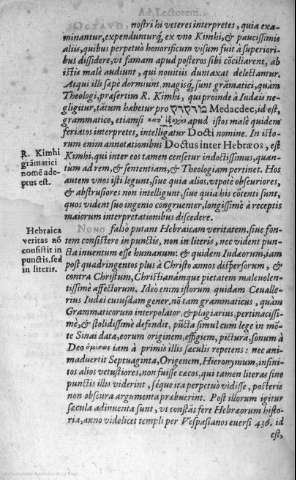 nostri hi veteres interpretes, quia exa-
minantur, expendunturq́, ex vno Kimhi, & paucissimis
aliis, quibus perpetuò honorificum visum fuit à superiori-
bus dissidere, vt famam apud posteros sibi cōciliarent, ab
istis malè audiunt, qui nouitiis duntaxat delectantur.
Atqui illi sapè dormiunt, magisq́, sunt grāmatici, quàm
Theologi, præsertim R. Kimhi, qui proinde à Iudæis ne-
gligitur, tātum habetur pro
Medacdec, id est,
grammatico, etiamsi
apud istos malè quidem
feriatos interpretes, intelligatur Docti nomine. In isto-
rum enim annotationibus Doctus inter Hebræos, est
Kimhi, qui inter eos tamen censetur indoctissimus, quan-
tum ad rem, & sententiam, & Theologiam pertinet. Hos
autem vnos isti legunt, siue quia alios, vtpote obscuriores,
& abstrusiores non intelligunt, siue quia hi cæcenti sunt,
quos vident suo ingenio congruenter, longissimè à receptis
maiorum interpretationibus discedere.
R. Kimhi
grāmatici
nomē ade-
ptus est.
Nono falsò putant Hebraicam veritatem, siue fon-
tem consistere in punctis, non in literis, nec vident pun-
cta inuentum esse humanum: & quidem Iudæorum, iam
post quadringentos pàuli à Christo annos dispersorum, &
contra Christum, Christianámque pietatem maleuolen-
tissimè affectorum. Ideò enim istorum quidam Ceualle-
rius Iudæi cuiusdam gener, nō tam grammaticus, quàm
Grammaticorum interpolator, & plagiarius, pertinacissi-
mè, & stolidissimè defendit, pūcta simul cum lege in mō-
te Sinai data, eorum originem, effigiem, picturā, sonum à
Deo
iam à primis illis sæculis repetens: nec ani-
maduertit Septuaginta, Origenem, Hieronymum, infini-
tos alios vetustiores, non fuisse cæcos, qui tamen literas sine
punctis illis viderint, idque ista perpetuò vidisse, posteris
non obscura argumenta præbuerint. Post illorum igitur
sæcula adinuenta sunt, vt constās fert Hebræorum histo-
ria, anno videlicet templi per Vespasianum euersi 436, id
est,
Hebraica
veritas nō
consistit in
punctis, sed
in literis.